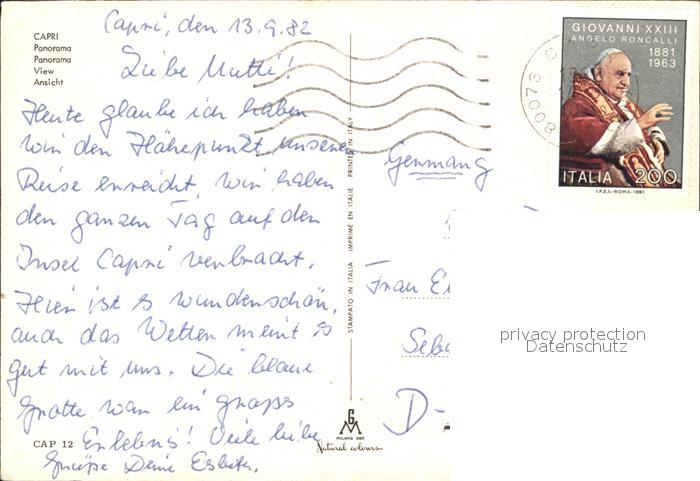 CAPRI
Panorama
Panorama
View
Ansicht
Capri, den 13.9.82
Liebe Mutti!
Heute glaube ich haben
wir den Höhepunkt unserer
Reise erreicht, wir haben
den ganzen Tag auf der
Insel Capri verbracht.
Hier ist es wunderschön,
auch das Wetter meint es
gut mit uns. Die blaue
Grotte war ein großes
Erlebnis! Viele liebe
Grüße Deine
CAP 12
STAMPATO IN ITALIA IMPRIMÉ EN ITALIE PRINTED IN ITALY
GM
MILANO DEP.
Natural colours
80073
GIOVANNI XXIII
ANGELO RONCALLI
1881
1963
ITALIA 200
I.P.Z.S.-ROMA-1981
Germany
Frau
D-
privacy protection
Datenschutz